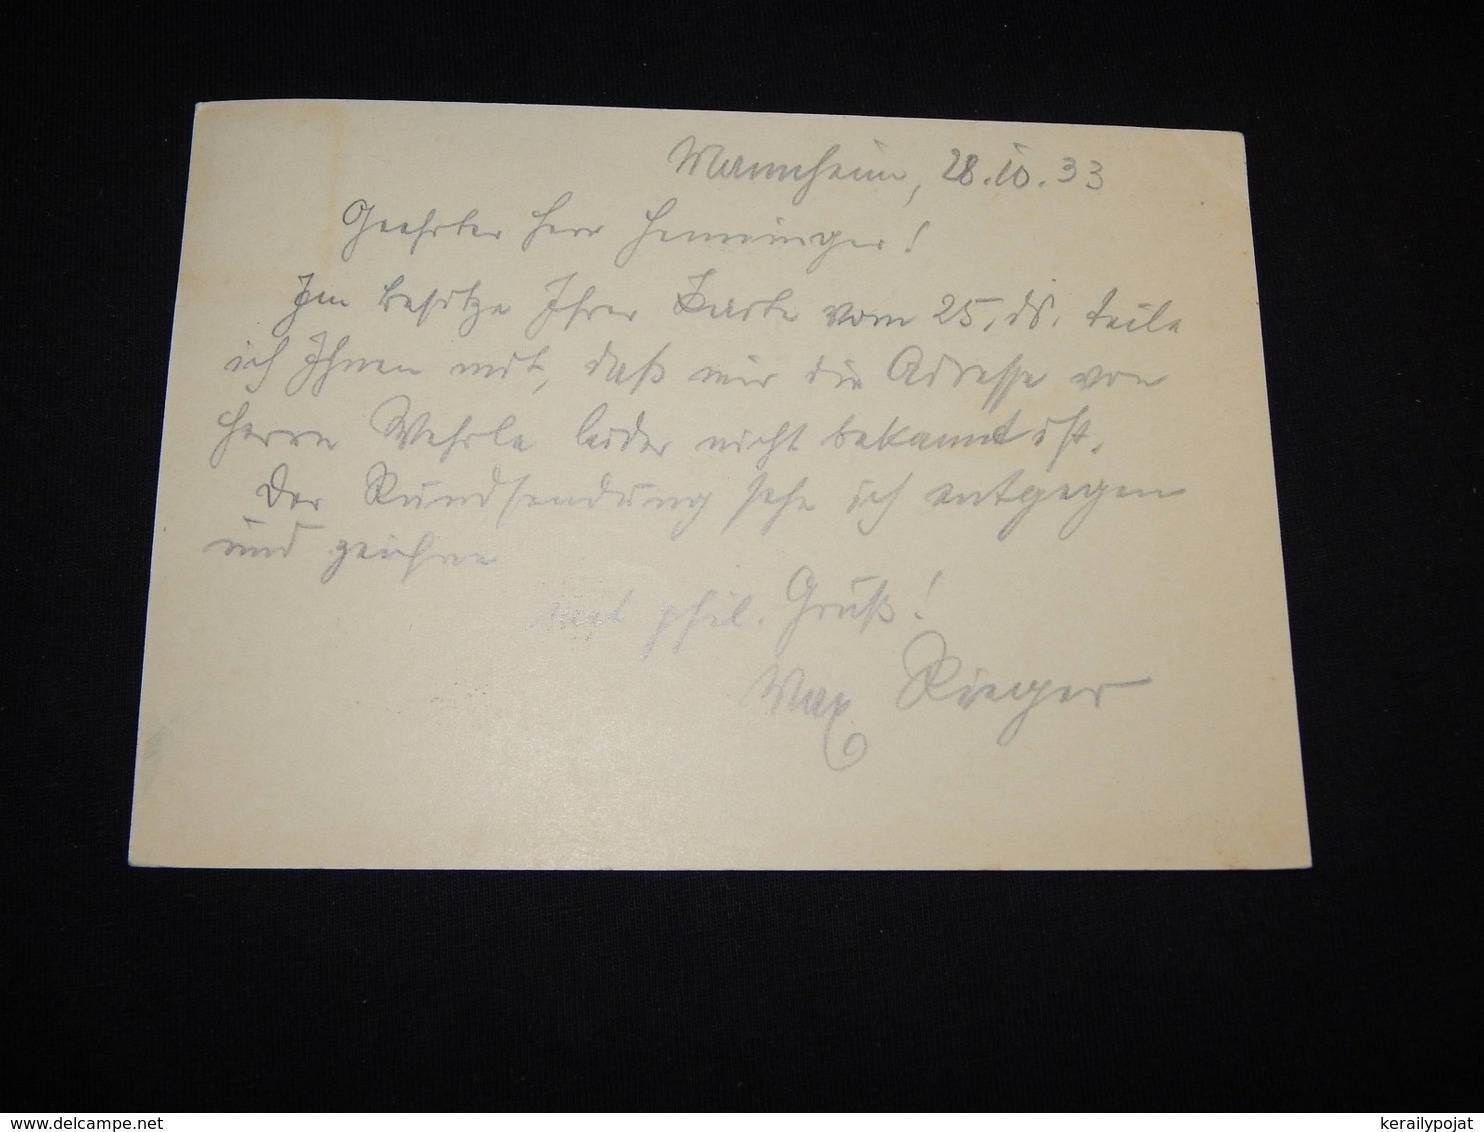 Mannheim, 28.10.33
Geehrter Herr Henninger!
Im Besitze Ihrer Karte vom 25. ds. teile
ich Ihnen mit, daß mir die Adresse von
Herrn Wehrle leider nicht bekannt ist.
Der Rundsendung sehe ich entgegen
und zeichne
mit phil. Gruß!
Max Rieger
www.delcampe.net
kerailypojat